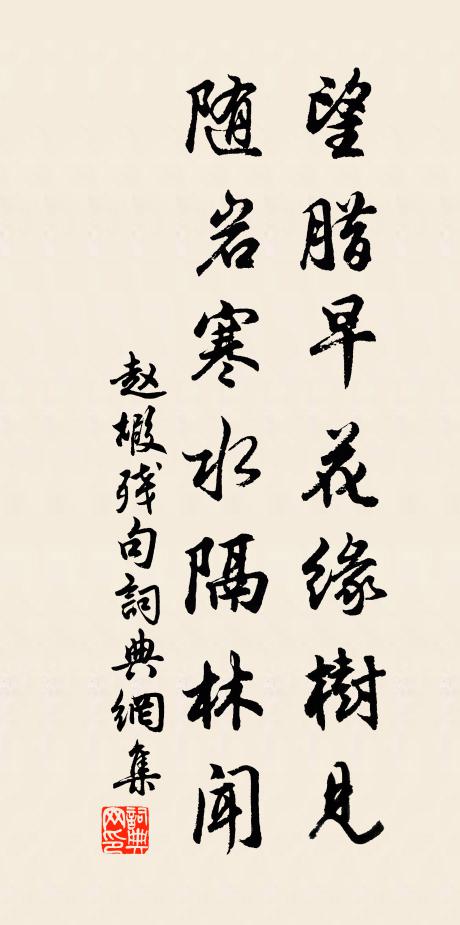 望腊早花缘樹見
随岩寒水隔林闻
赵椴残句詞典網集
詞典网印